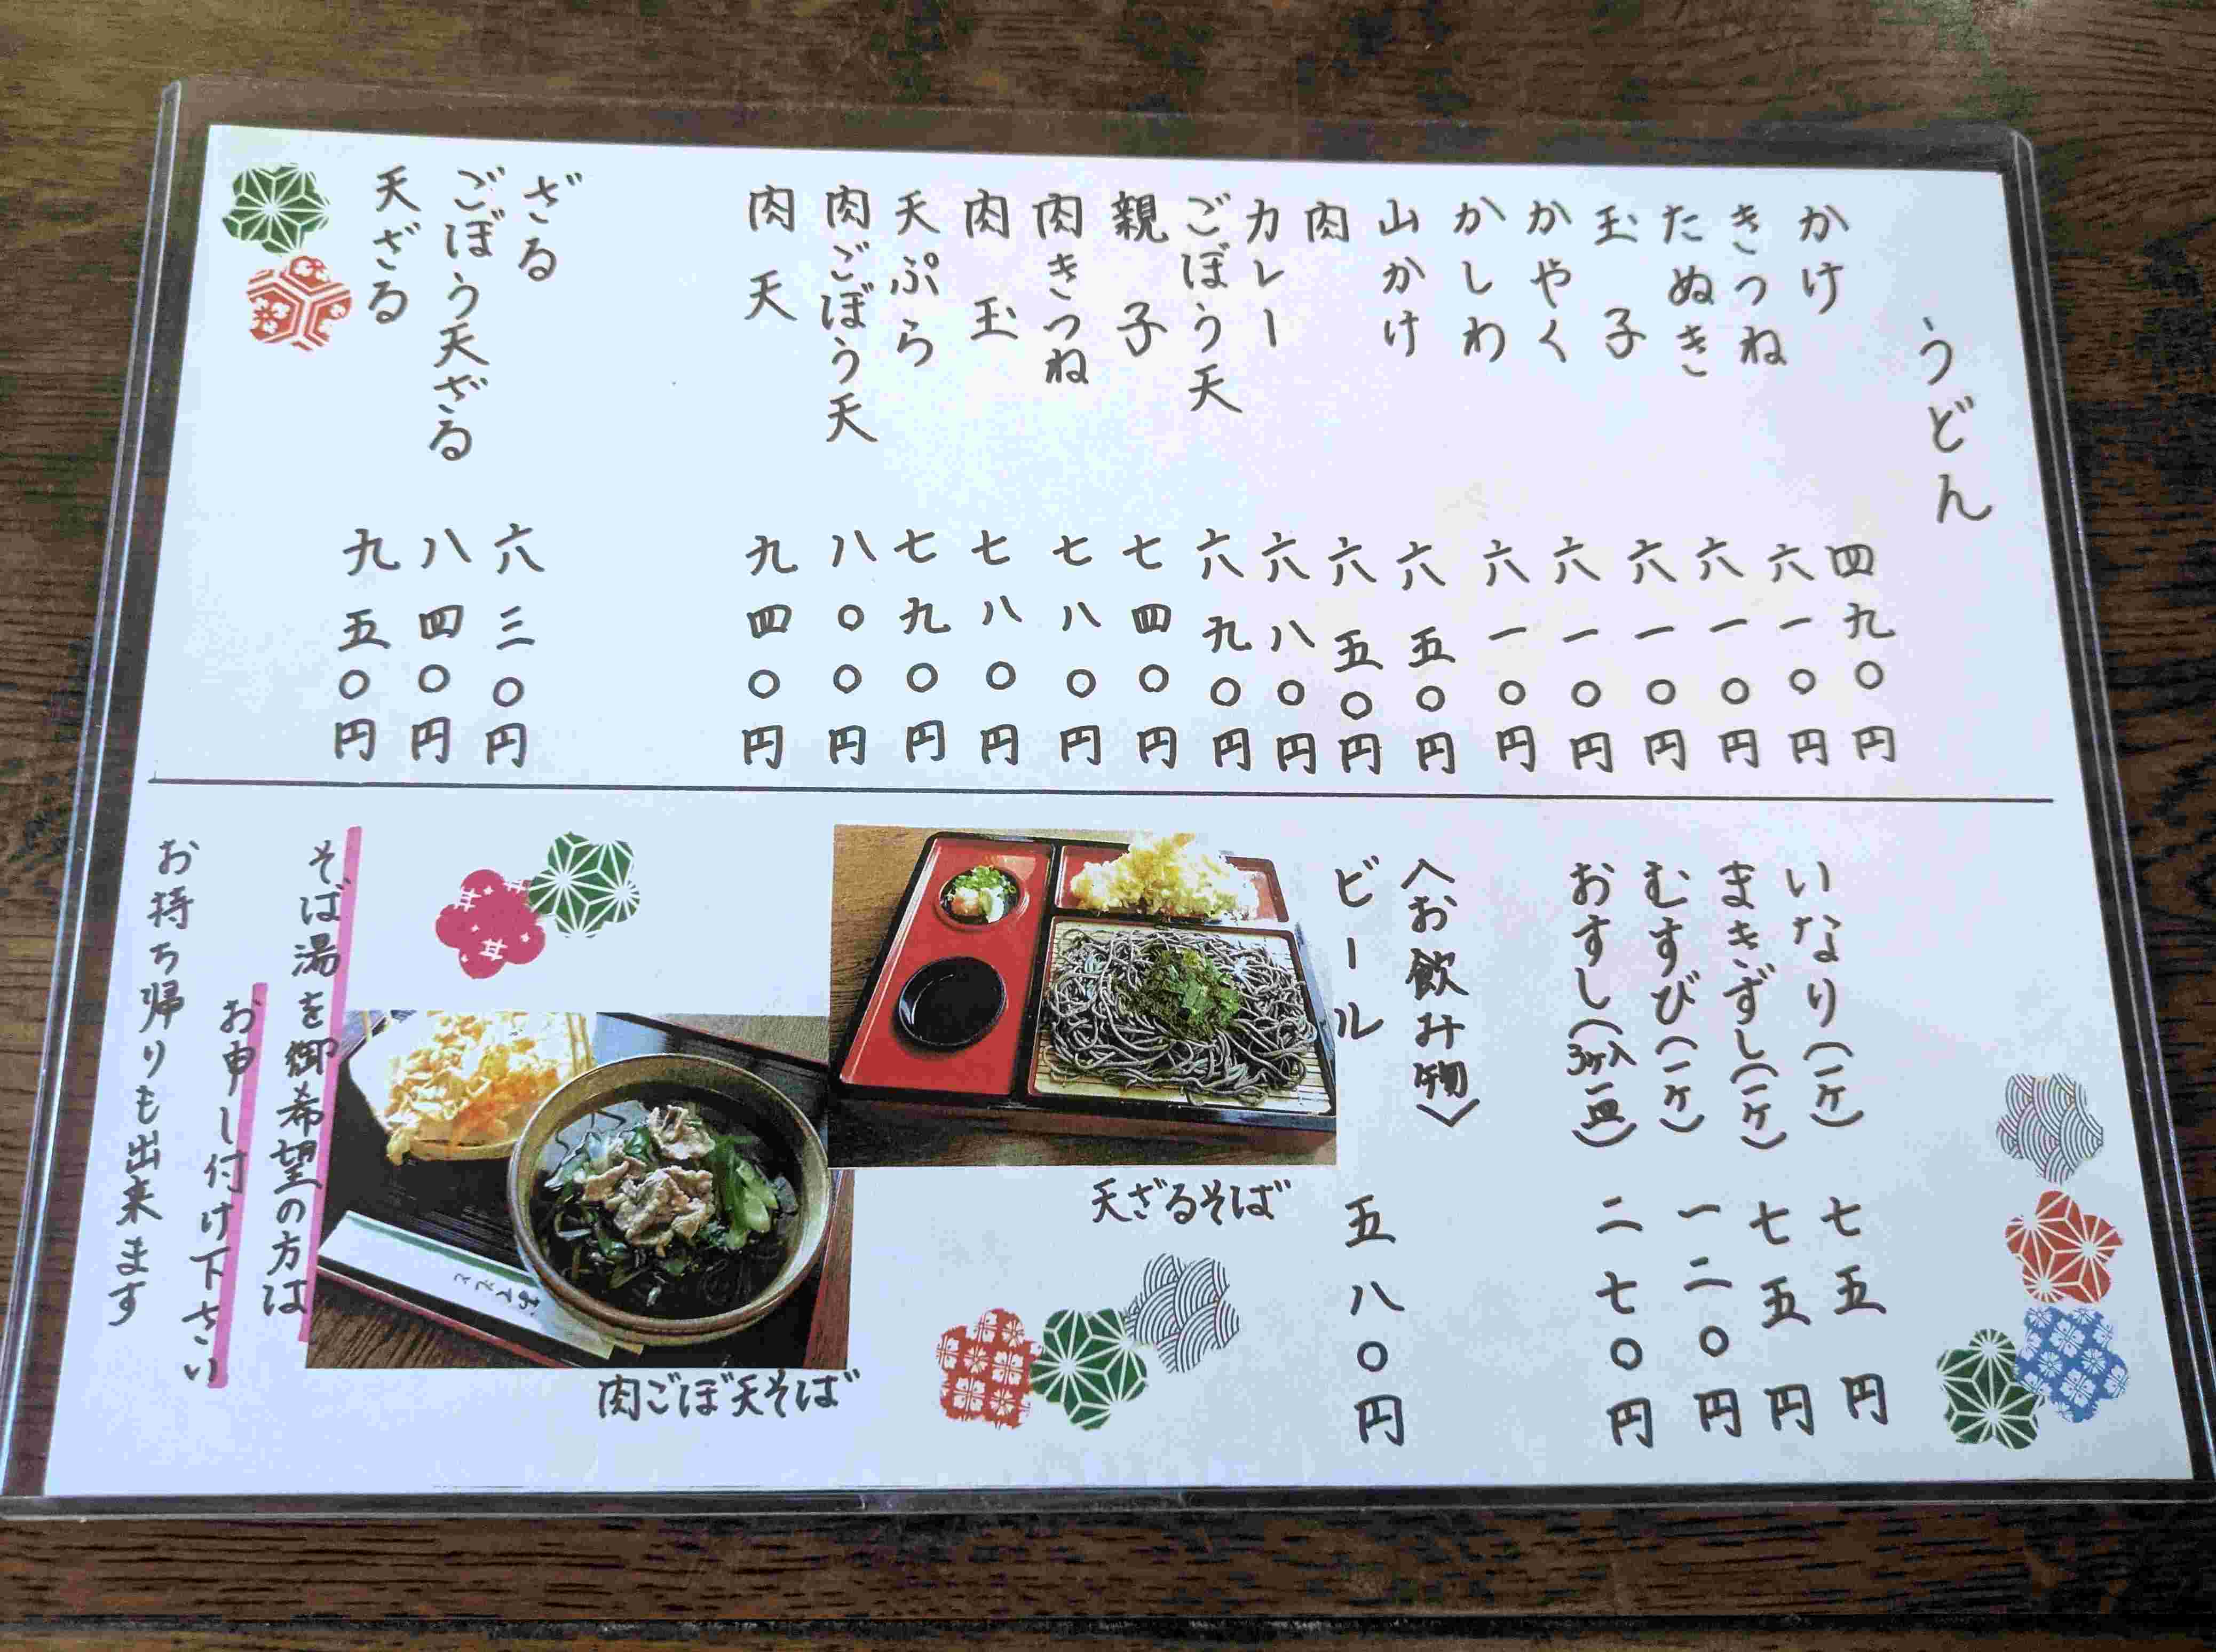 うどん
かけ 四九〇円
きつね 六一〇円
たぬき 六一〇円
玉子 六一〇円
かやく 六一〇円
かしわ 六一〇円
山かけ 六五〇円
肉 六五〇円
カレー 六八〇円
ごぼう天 六九〇円
親子 七四〇円
肉きつね 七八〇円
肉玉 七八〇円
天ぷら 七九〇円
肉ごぼう天 八〇〇円
肉天 九四〇円
ざる 六三〇円
ごぼう天ざる 八四〇円
天ざる 九五〇円
いなり(一ケ) 七五円
まきずし(一ケ) 七五円
むすび(一ケ) 一二〇円
おすし(3ケ入一皿) 二七〇円
〈お飲み物〉
ビール 五八〇円
天ざるそば
肉ごぼ天そば
そば湯を御希望の方は
お申し付け下さい
お持ち帰りも出来ます